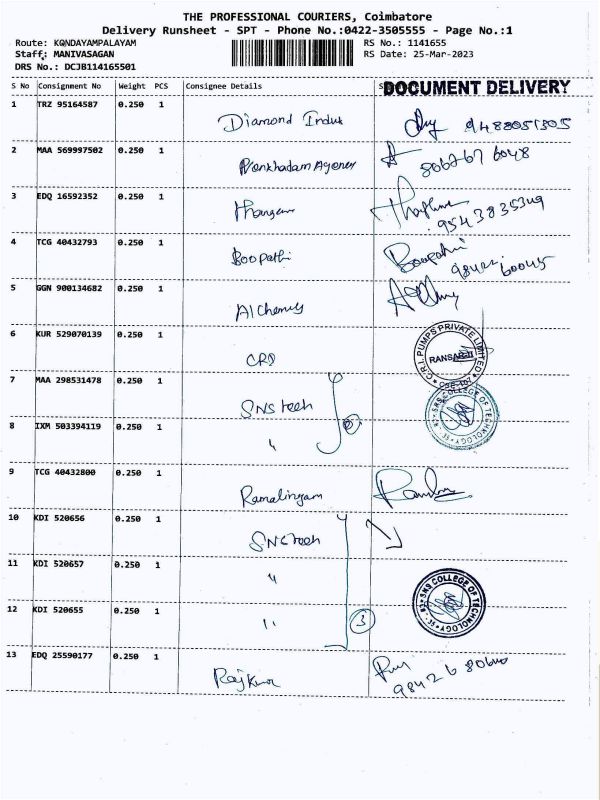 THE PROFESSIONAL COURIERS, Coimbatore
Delivery Runsheet - SPT - Phone No.:0422-3505555 - Page No.:1
Route: KQNDAYAMPALAYAM RS No.: 1141655
Staff: MANIVASAGAN RS Date: 25-Mar-2023
DRS No.: DCJB114165501
S No Consignment No Weight PCS Consignee Details S DOCUMENT DELIVERY
1 TRZ 95164587 0.250 1 Diamond Indus
2 MAA 569997502 0.250 1 Venkhadam Agency
3 EDQ 16592352 0.250 1
9543835349
4 TCG 40432793 0.250 1 Boopathi Boopathi
98422 60045
5 GGN 900134682 0.250 1 Alchemy
6 KUR 529070139 0.250 1 C.R.I. PUMPS PRIVATE LIMITED
7 MAA 298531478 0.250 1 SNS tech SNS COLLEGE OF TECHNOLOGY
8 IXM 503394119 0.250 1 "
9 TCG 40432800 0.250 1 Ramalingam
10 KDI 520656 0.250 1 SNS tech
11 KDI 520657 0.250 1 "
12 KDI 520655 0.250 1 " 3 SNS COLLEGE OF TECHNOLOGY
13 EDQ 25590177 0.250 1 Rajkumar